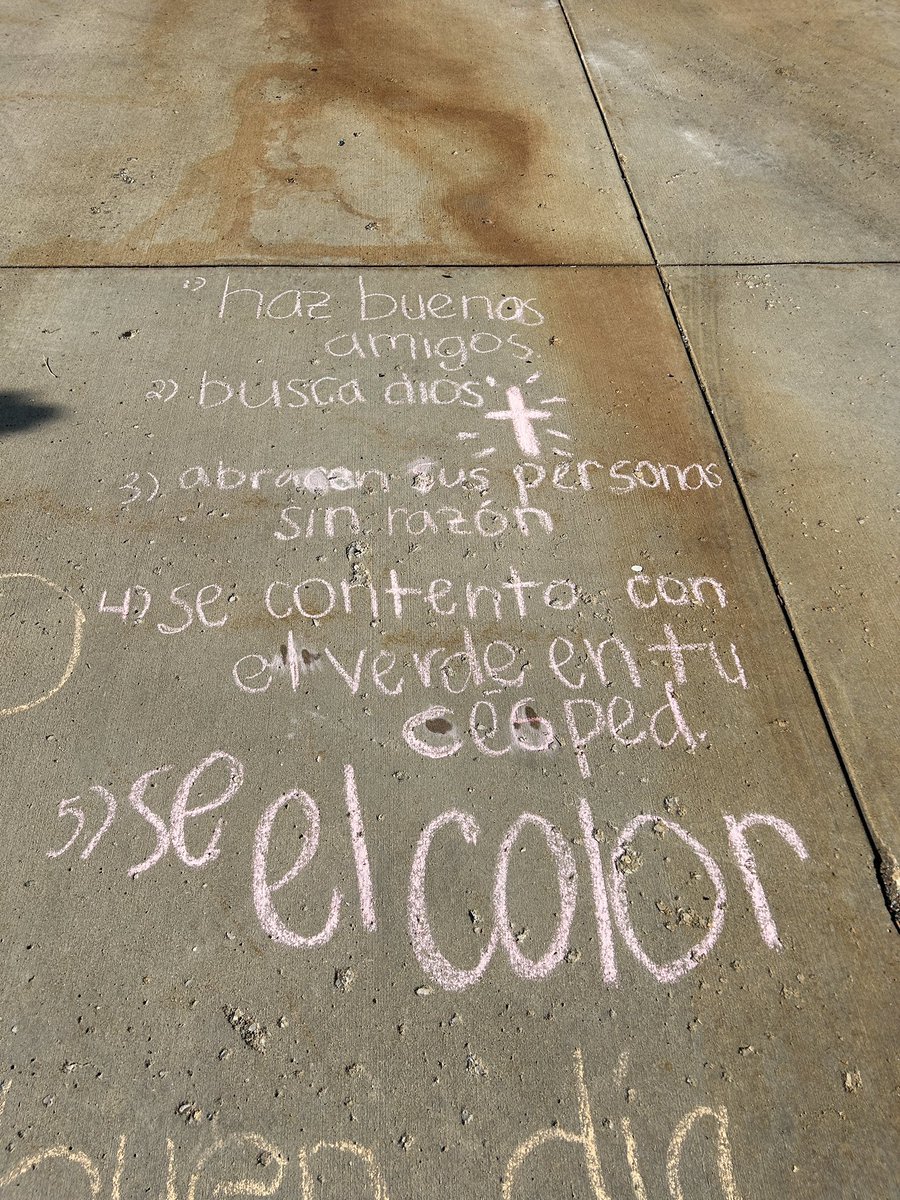 1) haz buenos
amigos.
2) busca dios
3) abracan sus personas
sin razón
4) se contento con
el verde en tu
césped.
5) se el color
buen día